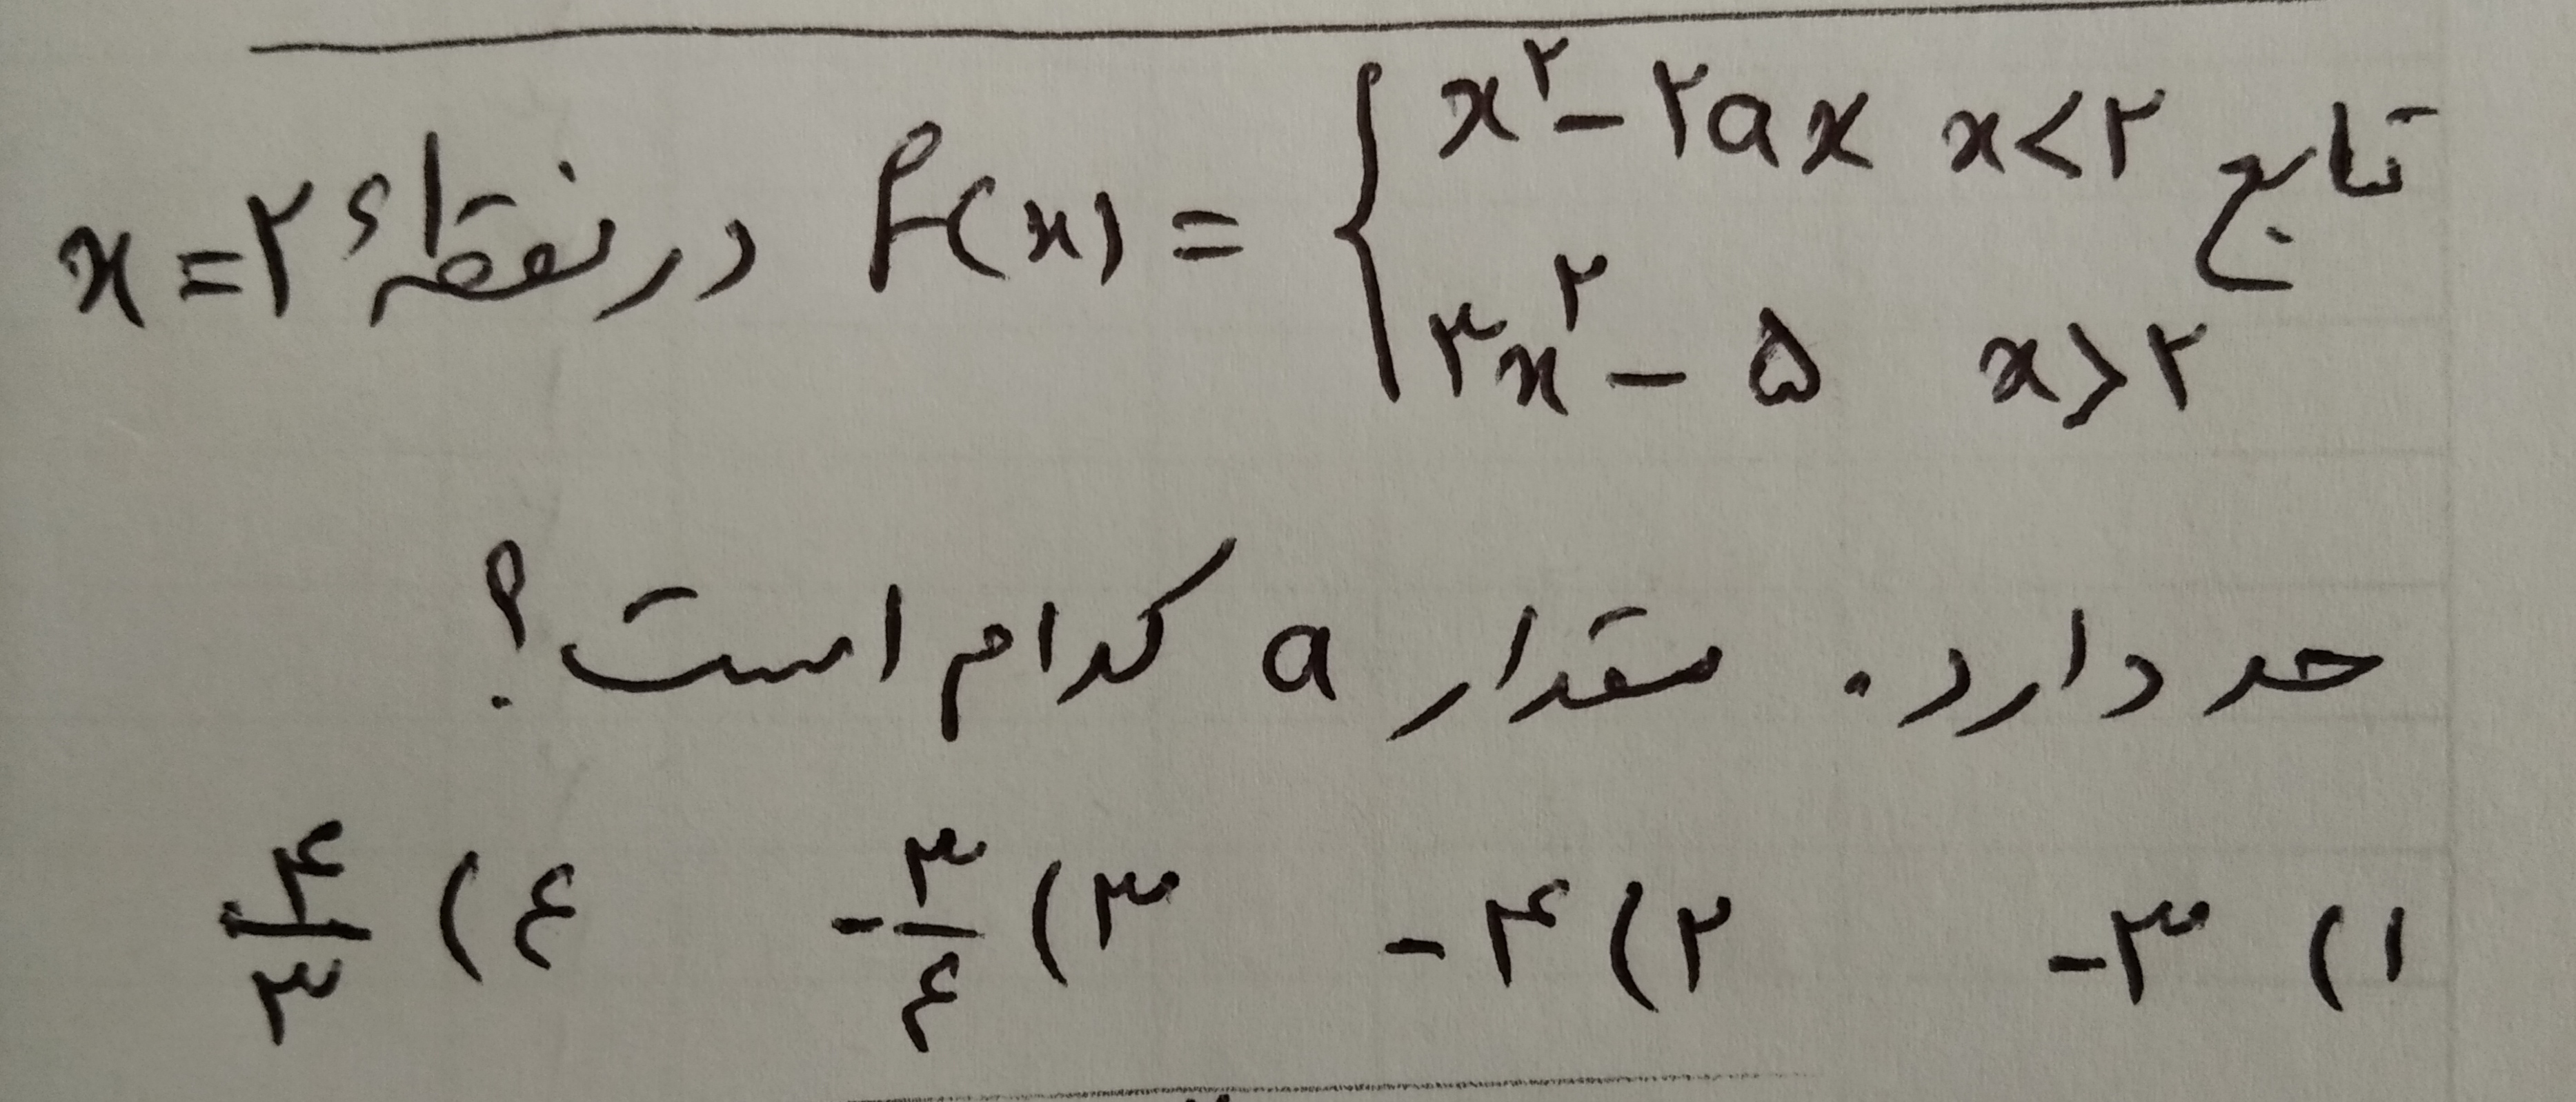 تابع f(x) = { x² - ۲ax  x < ۲
۳x² - ۵  x > ۲ در نقطه‌ای x = ۲
حد دارد. مقدار a کدام است؟
۱) -۳  ۲) -۴  ۳) -۳/۴  ۴) ۴/۳